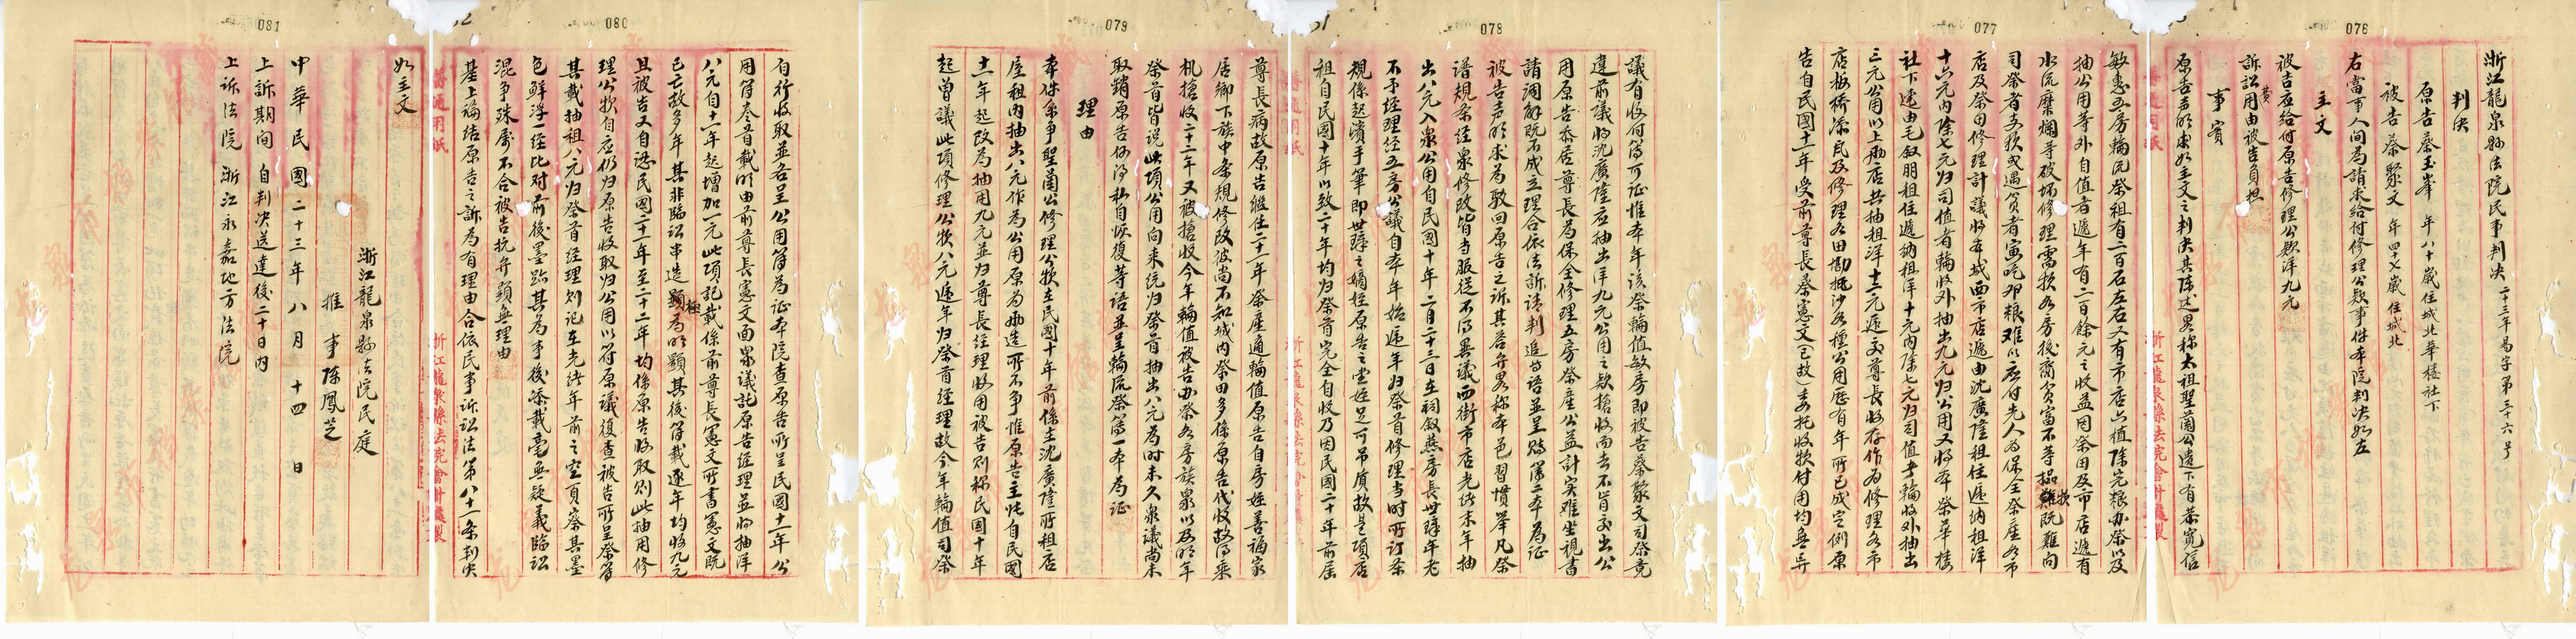 076
浙江龍泉縣法院民事判決 二十三年易字第三十六号
判決
原告蔡玉峯 年八十歲住城北華楼社下
被告蔡聚文 年四十六歲住城北
右當事人間為請求給付修理公款事件本院判決如左
主文
被告应給付原告修理公款洋九元
訴訟費用由被告負担
事實
原告声明求如主文之判決其陈述畧称太祖聖蘭公遺下有恭寬信
敏惠五房輪流祭租有二百石左右又有市店六植除完粮办祭以及
077
抽公用等外自值者遞年有二百餘元之收益因祭田及市店遞有
水沉糜爛等破坏修理需款各房後裔貧富不等揾款既難向
司祭者支款或遇貧者寅吃卯粮难以应付先人为保全祭產各市
店及祭田修理計議將本城西市店遞由沈廣隆租住遞納租洋
十六元内除七元归司值者輪收外抽出九元归公用又將本祭華楼
社下遞由毛叙朋租住遞納租洋十元内除七元归司值者輪收外抽出
三元公用以上兩店共抽租洋十二元遞交尊長收存作為修理各市
店板桥添瓦及修理各田勘抵沙各種公用歷有年所已成定例原
告自民國十一年受前尊長蔡憲文(已故)委托收款付用均無异
078
議有收付簿可证惟本年该祭輪值敏房即被告蔡聚文司祭竟
違前議將沈廣隆应抽出洋九元公用之款搶收而去不肯交出公
用原告忝居尊長為保全修理五房祭產公益計实难坐視書
請調解既不成立理合依法訴请判追等語並呈賬簿二本為证
被告声明求為駁回原告之訴其答弁畧称本邑習慣举凡祭
谱規条經衆修改皆当服從不得異議西街市店光绪末年抽
出八元入衆公用自民國十年二月二十三日在祠叙燕房長世璋年老
不予經理經五房公議自本年始遞年归祭首修理当時所订条
規係起濱手筆即世璋之嫡姪原告之堂姪足可吊質故是項店
租自民國十年以致二十年均归祭首完全自收乃因民國二十年前届
079
尊長病故原告継任二十一年祭產適輪值原告自房姪善福家
居鄉下族中条規修改彼尚不知城内祭田多係原告代收故得乘
机搶收二十二年又被搶收今年輪值被告办祭各房族衆以及明年
祭首皆说此項公用向来统归祭首抽出八元為时未久衆議尚未
取銷原告何得私自恢復等语並呈輪流祭簿一本為证
理由
本件系争聖蘭公修理公款在民國十年前係在沈廣隆所租店
屋租内抽出八元作為公用原为兩造所不争惟原告主张自民國
十一年起改为抽用九元並归尊長經理收用被告则称民國十年
起曾議此項修理公款八元遞年归祭首經理故今年輪值司祭
080
自行收取並各呈公用簿為证本院查原告所呈民國十一年公
用簿叁首載明由前尊長憲文面衆議託原告經理並将抽洋
八元自十一年起增加一元此項記載係前尊長憲文所書憲文既
已亡故多年其非臨訟串造極为明顕其後簿載逐年均收九元
且被告又自認民國二十一年至二十二年均係原告收取则此抽用修
理公款自应仍归原告收取归公用以符原議復查被告所呈祭簿
其載抽租八元归祭首經理则记在光绪年前之空頁察其墨
色鮮浮一经比对前後墨跡其为事後添載毫無疑義臨訟
混争殊屬不合被告抗弁顕無理由
基上論结原告之訴為有理由合依民事訴訟法第八十一条判决
081
如主文
浙江龍泉縣法院民庭
推事 陈鳳芝
中華民國二十三年八月十四日
上訴期间 自判决送達後二十日内
上訴法院 浙江永嘉地方法院